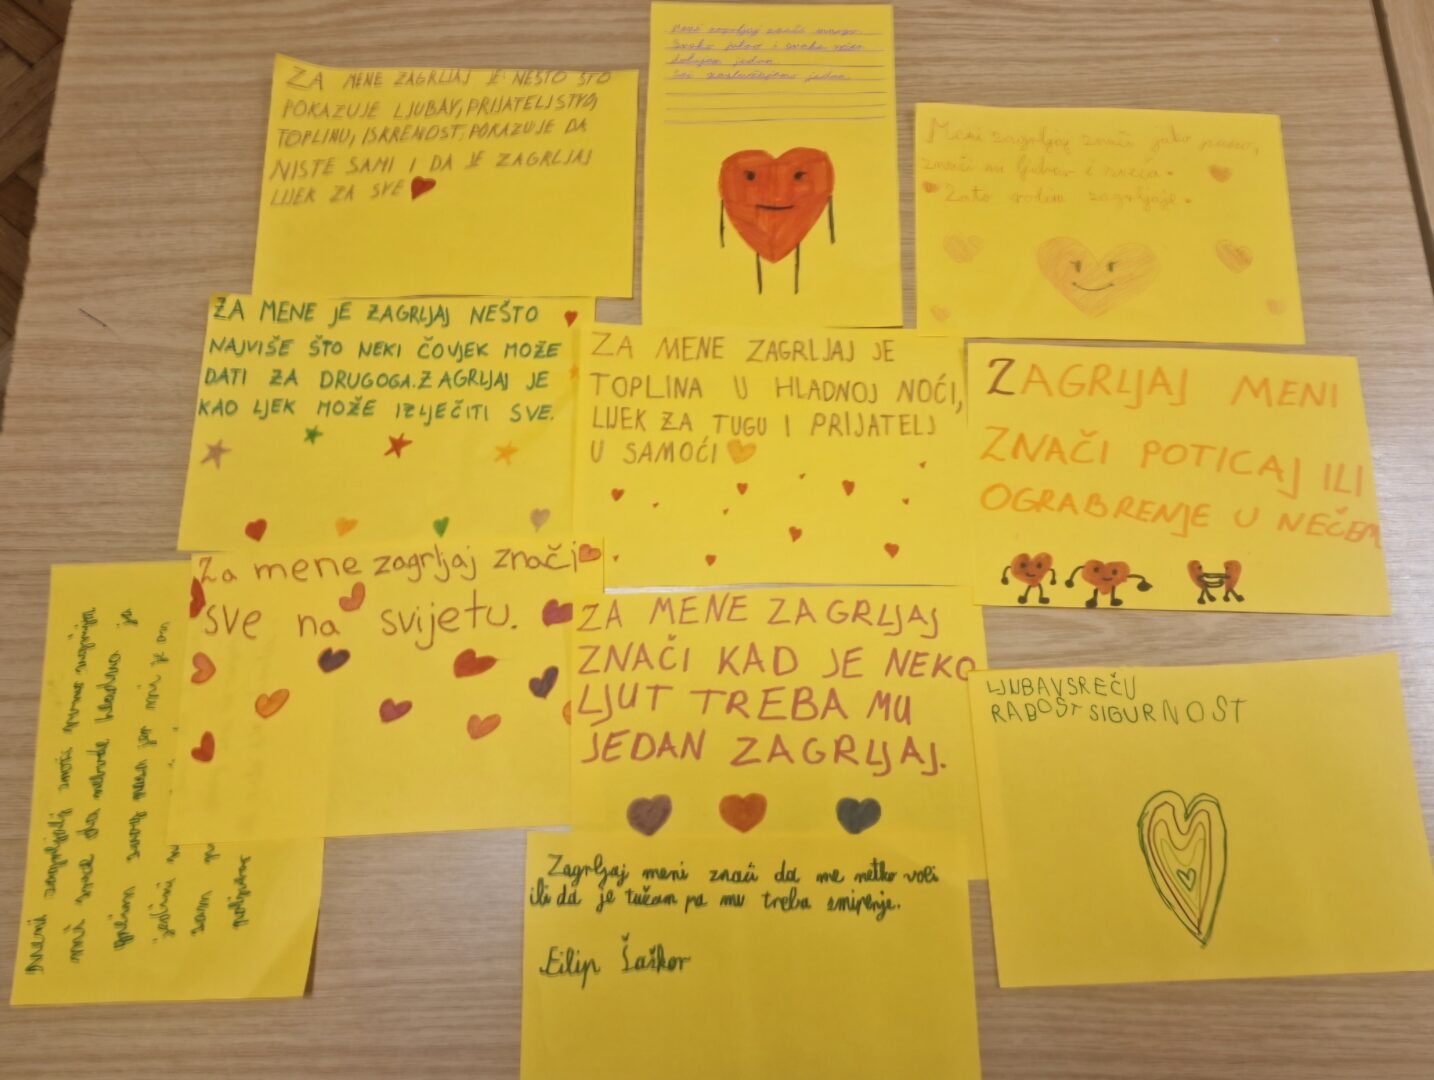 ZA MENE ZAGRLJAJ JE NEŠTO ŠTO
POKAZUJE LJUBAV, PRIJATELJSTVO,
TOPLINU, ISKRENOST, POKAZUJE DA
NISTE SAMI I DA JE ZAGRLJAJ
LIJEK ZA SVE
Meni zagrljaj znači mnogo.
Svako jutro i svaku večer
dobijem jedan.
Svi zaslužujemo jedan.
Meni zagrljaj znači jako puno,
znači mi ljubav i sreća.
Zato volim zagrljaje.
ZA MENE JE ZAGRLJAJ NEŠTO
NAJVIŠE ŠTO NEKI ČOVJEK MOŽE
DATI ZA DRUGOGA. ZAGRLJAJ JE
KAO LJEK MOŽE IZLJEČITI SVE.
ZA MENE ZAGRLJAJ JE
TOPLINA U HLADNOJ NOĆI,
LIJEK ZA TUGU I PRIJATELJ
U SAMOĆI
ZAGRLJAJ MENI
ZNAČI POTICAJ ILI
OGRABRENJE U NEČEM
Za mene zagrljaj znači
sve na svijetu.
ZA MENE ZAGRLJAJ
ZNAČI KAD JE NEKO
LJUT TREBA MU
JEDAN ZAGRLJAJ.
LJUBAV SREĆU
RADOST SIGURNOST
Meni zagrljalj znači
mi srce da nebude hladno. ja
Zagrljaj meni znači da me netko voli
ili da je tužan pa mu treba smirenje.
Filip Šaškor